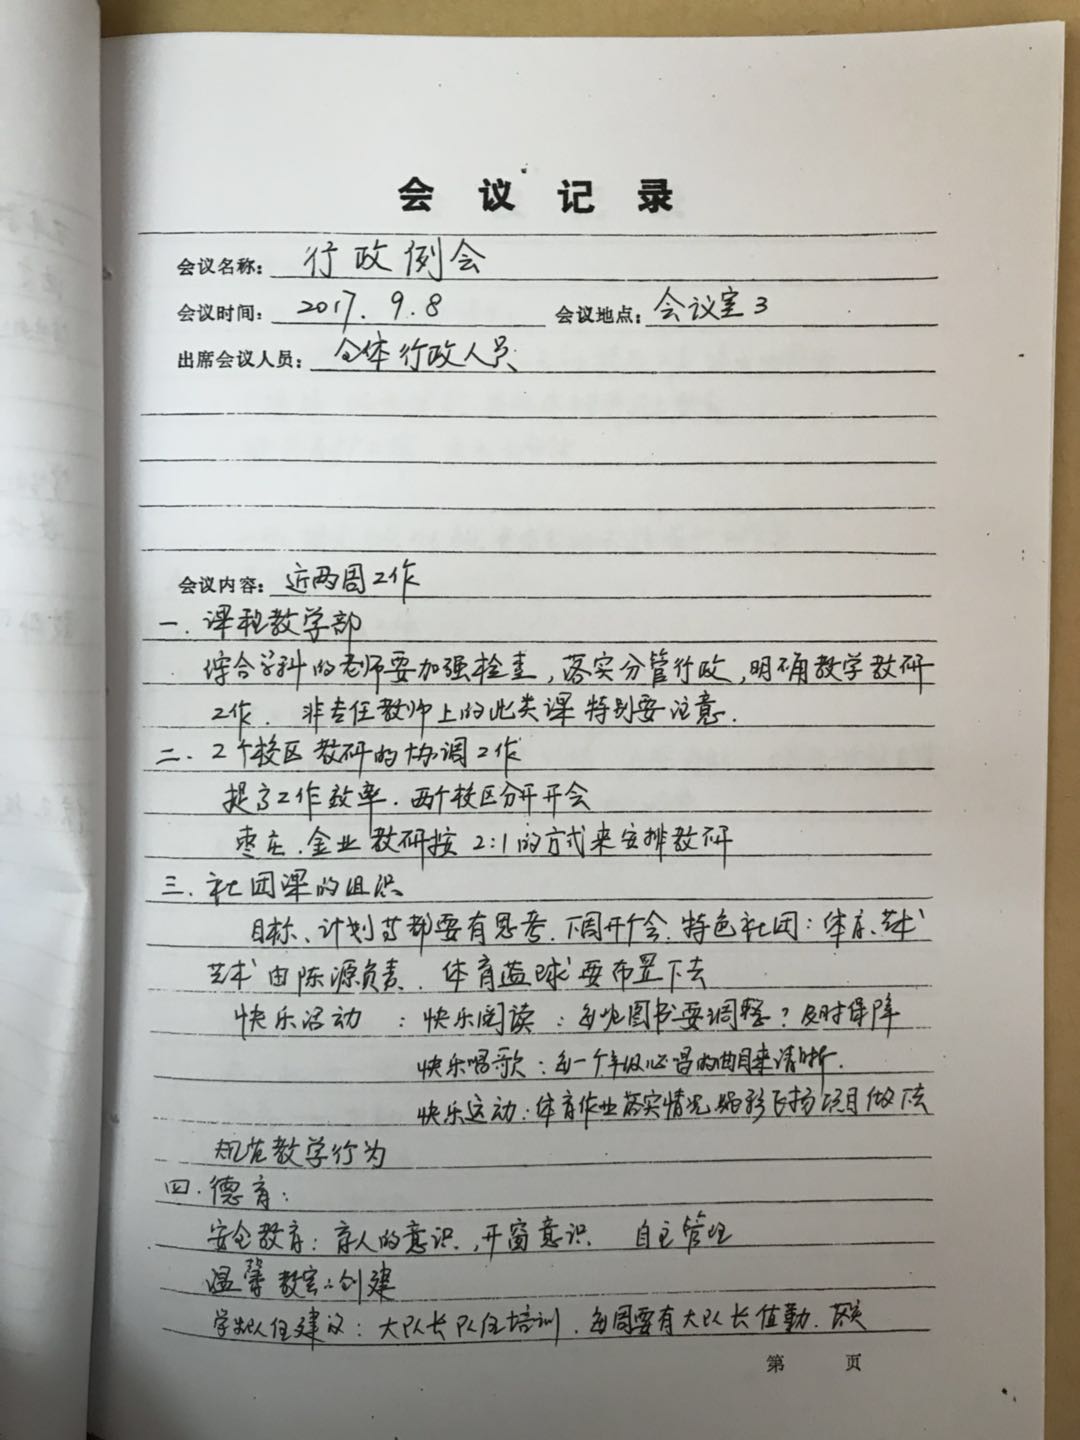 会议记录
会议名称: 行政例会
会议时间: 2017.9.8 会议地点: 会议室3
出席会议人员: 全体行政人员
会议内容: 近两周工作
一. 课程教学部
综合学科的老师要加强检查,落实分管行政,明确教学教研
工作. 非专任教师上的此类课特别要注意.
二. 2个校区教研的协调工作
提高工作效率. 两个校区分开开会
枣庄、金业教研按2:1的方式来安排教研
三. 社团课的组织
目标、计划等都要有思考.下周开个会.特色社团:体育、艺术
艺术由陈源负责. 体育篮球要布置下去
快乐活动 : 快乐阅读: 每光图书要调整? 及时保障
快乐唱歌: 每一个年级必唱的曲目来清晰.
快乐运动: 体育作业落实情况 飞扬项目做下去
规范教学行为
四. 德育:
安全教育: 育人的意识、开窗意识 自主管理
温馨教室:创建
建议: 大队长队伍培训. 每周要有大队长值勤. 落实
第 页